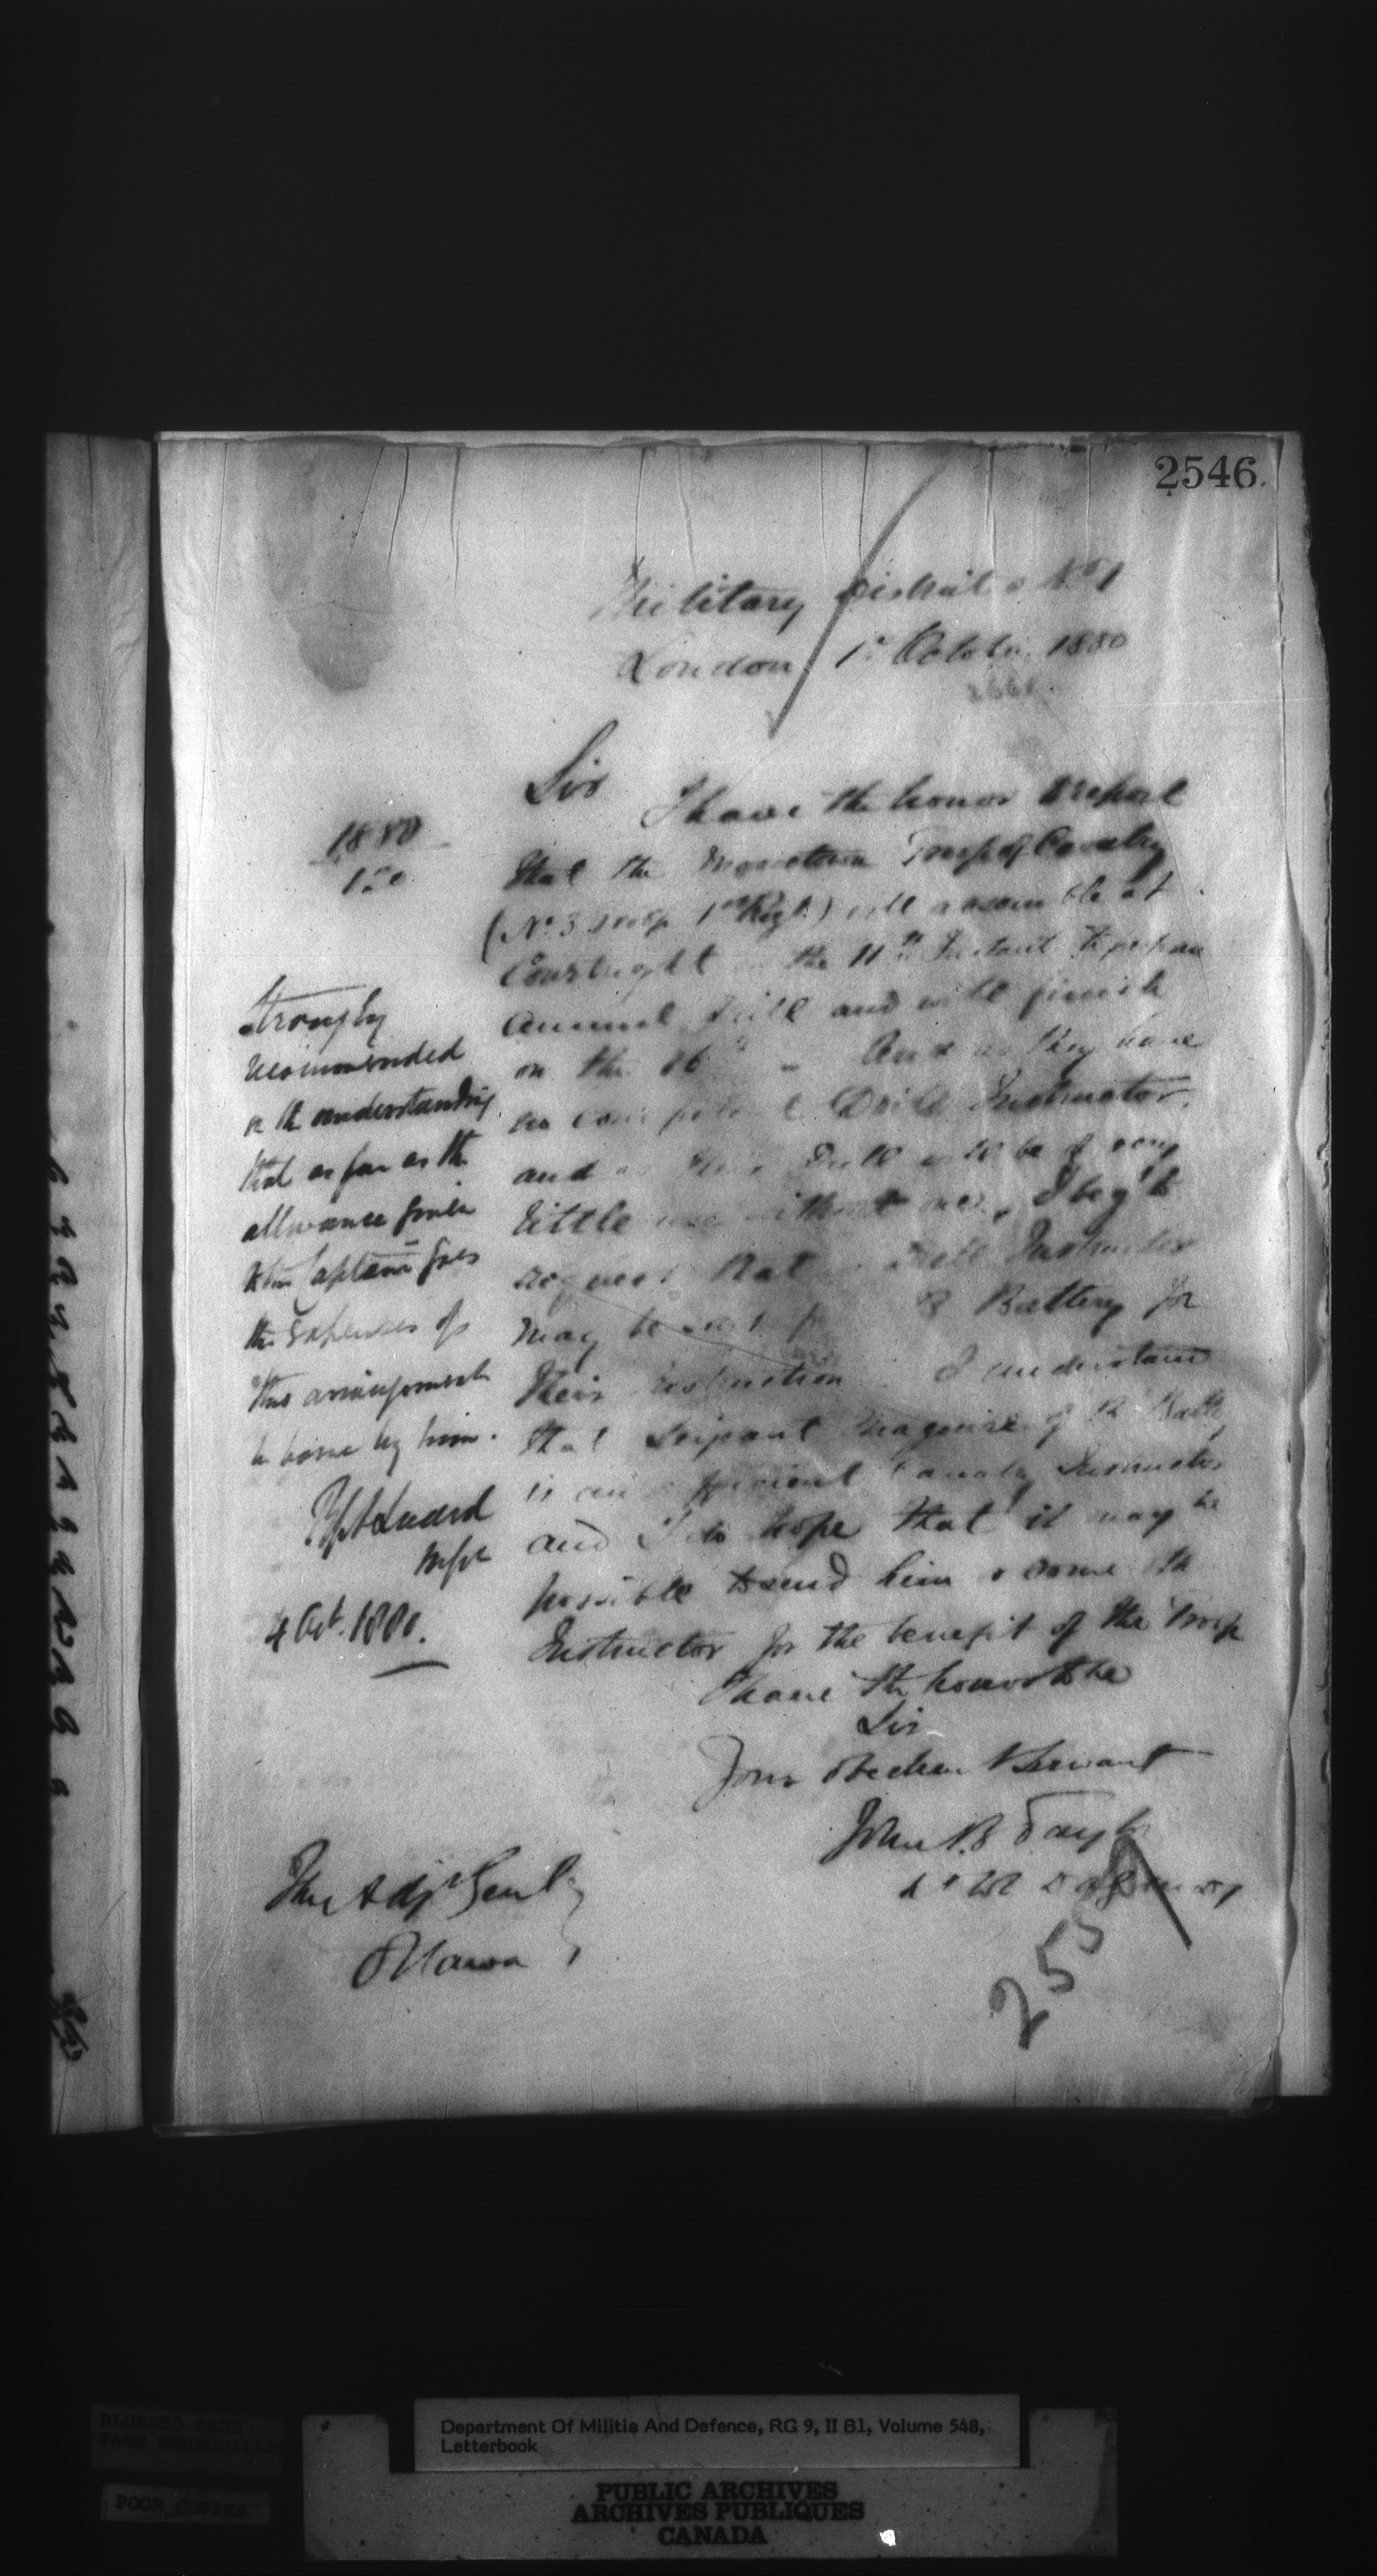 2546.
Military District No 1
London 1st October 1880
Sir
I have the honor to report
that the Mooretown Troop of Cavalry
(No. 3 Troop 1st Regt.) will assemble at
Courtright on the 11th Instant to perform
Annual Drill and will finish
on the 16th - And as they have
no competent Drill Instructor,
and as their Drill will be of very
little use without one, I beg to
request that Drill Instructor
may be sent B Battery for
their instruction I understand
that Serjeant of B Batty
is an efficient Cavalry Instructor
and I do hope that it may be
possible to send him or some
Instructor for the benefit of the Troop
I have the honor to be
Sir
Your obedient Servant
John B Taylor
Lt Col
The Adjt Genl
Ottawa
255
1880
Strongly
recommended
on the understanding
that as far as the
allowance given
to the Captain goes
the expenses of
this arrangement
be borne by him.
Luard
4 Oct. 1880.
Department Of Militia And Defence, RG 9, II B1, Volume 548,
Letterbook
BLURRED PAGE
POOR COPIES
PUBLIC ARCHIVES
ARCHIVES PUBLIQUES
CANADA